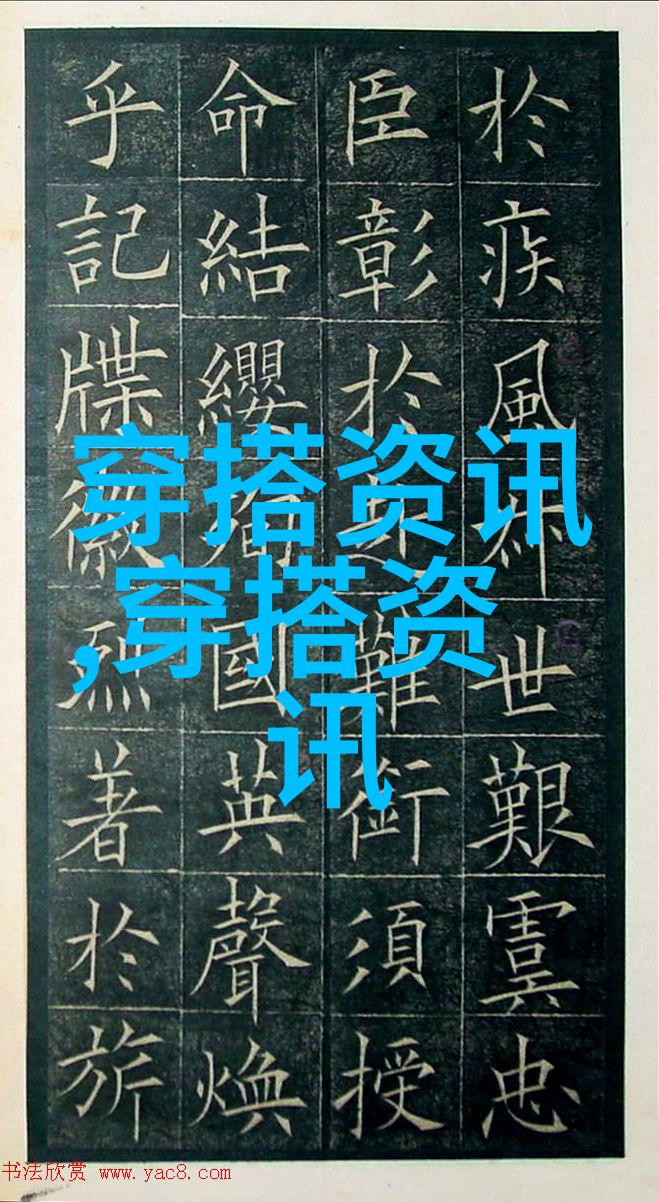 於疾風世艱虞忠
臣彰於難銜須授
命結纓殉國英聲煥
乎記牒徽烈著於旂
穿搭资讯
,穿搭资
讯
书法欣赏 www.yac8.com